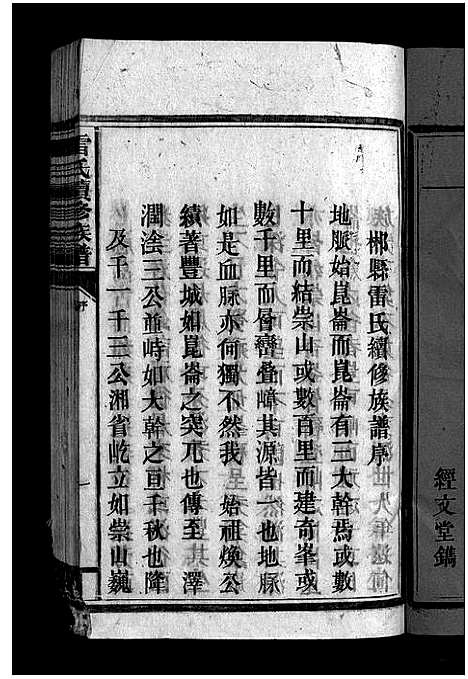 經文堂鐫
郴縣雷氏續修族譜序
地脈始崑崙而崑崙有三大幹焉或數
十里而結崇山或數百里而建奇峯或
數千里而層巒叠嶂其源皆一也地脈
如是血脈亦何獨不然我 始祖煥公
績著豐城如崑崙之突兀也傳至 澤
潤淦三公並峙如大幹之亘千秋也降
及千一千三公湘省屹立如崇山巍
雷氏續修族譜
序